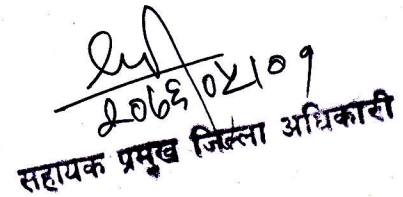 २०७६/०५/०१
सहायक प्रमुख जिल्ला अधिकारी